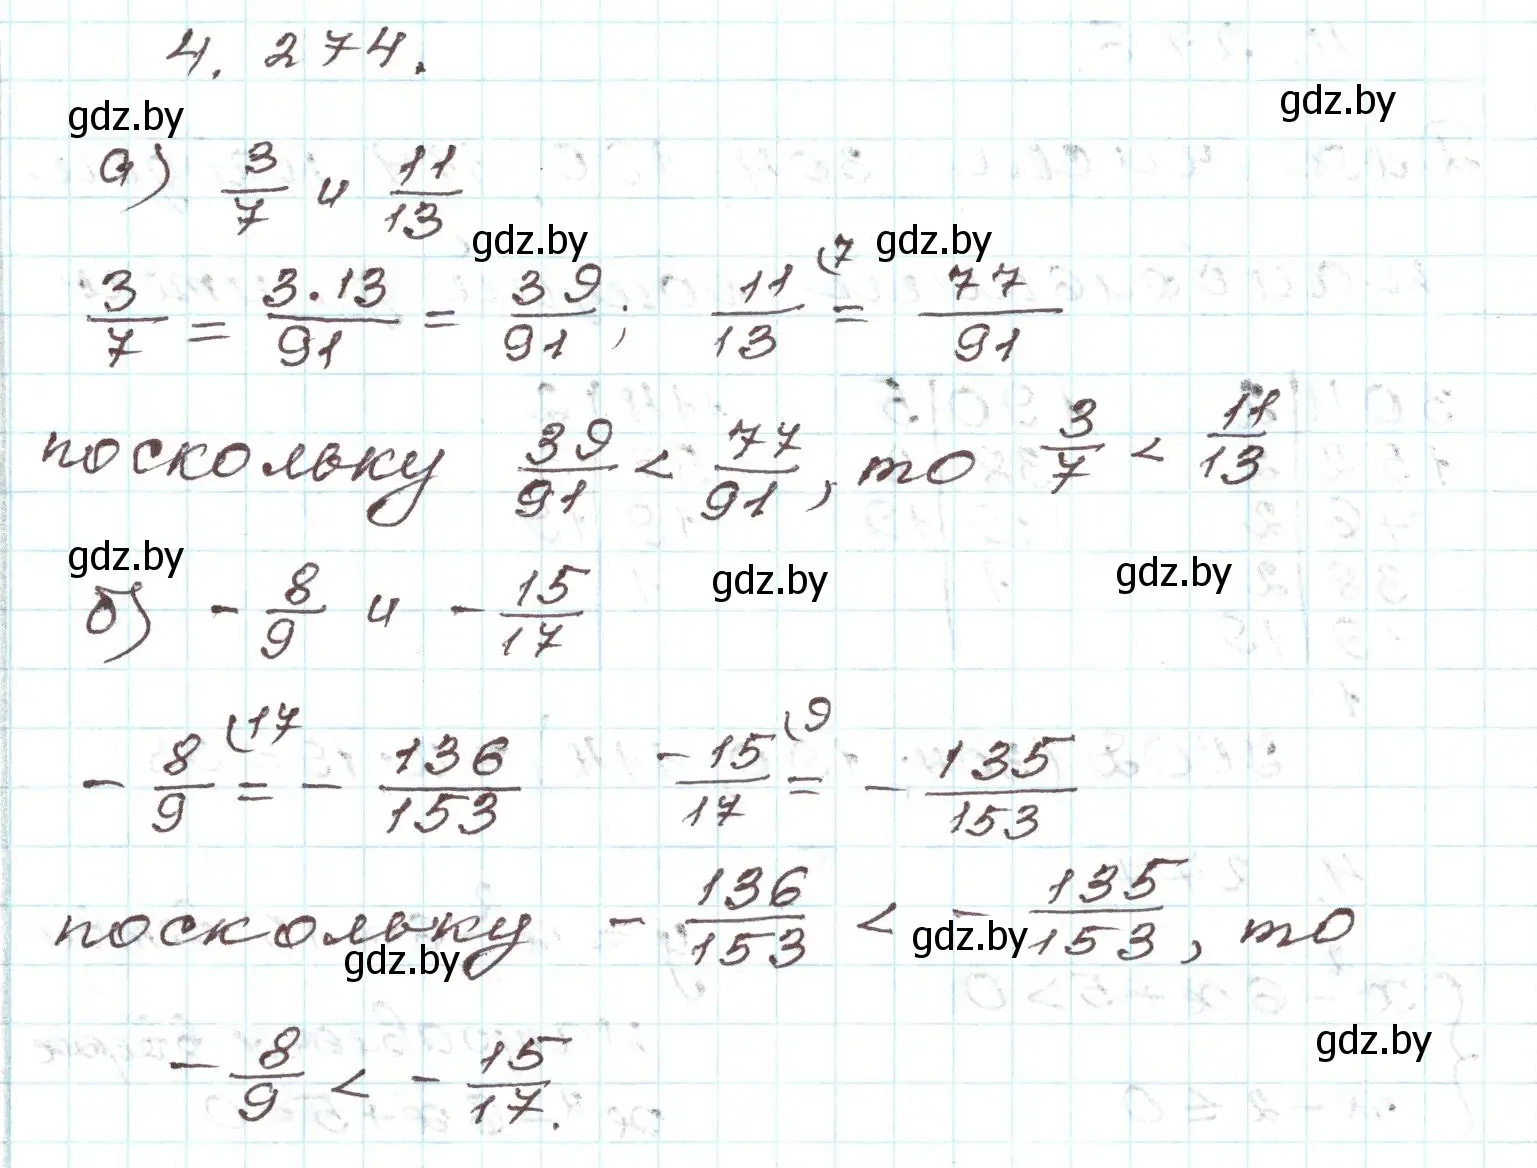 4. 274.
gdz.by
gdz.by
а) 3/7 и 11/13
gdz.by
gdz.by
3/7 = 3·13/91 = 39/91; 11/13 (7 = 77/91
поскольку 39/91 < 77/91, то 3/7 < 11/13
gdz.by
gdz.by
gdz.by
б) - 8/9 и - 15/17
- 8/9 (17 = - 136/153 -15/17 (9 = - 135/153
поскольку - 136/153 < - 135/153, то
gdz.by
gdz.by
gdz.by
- 8/9 < - 15/17.